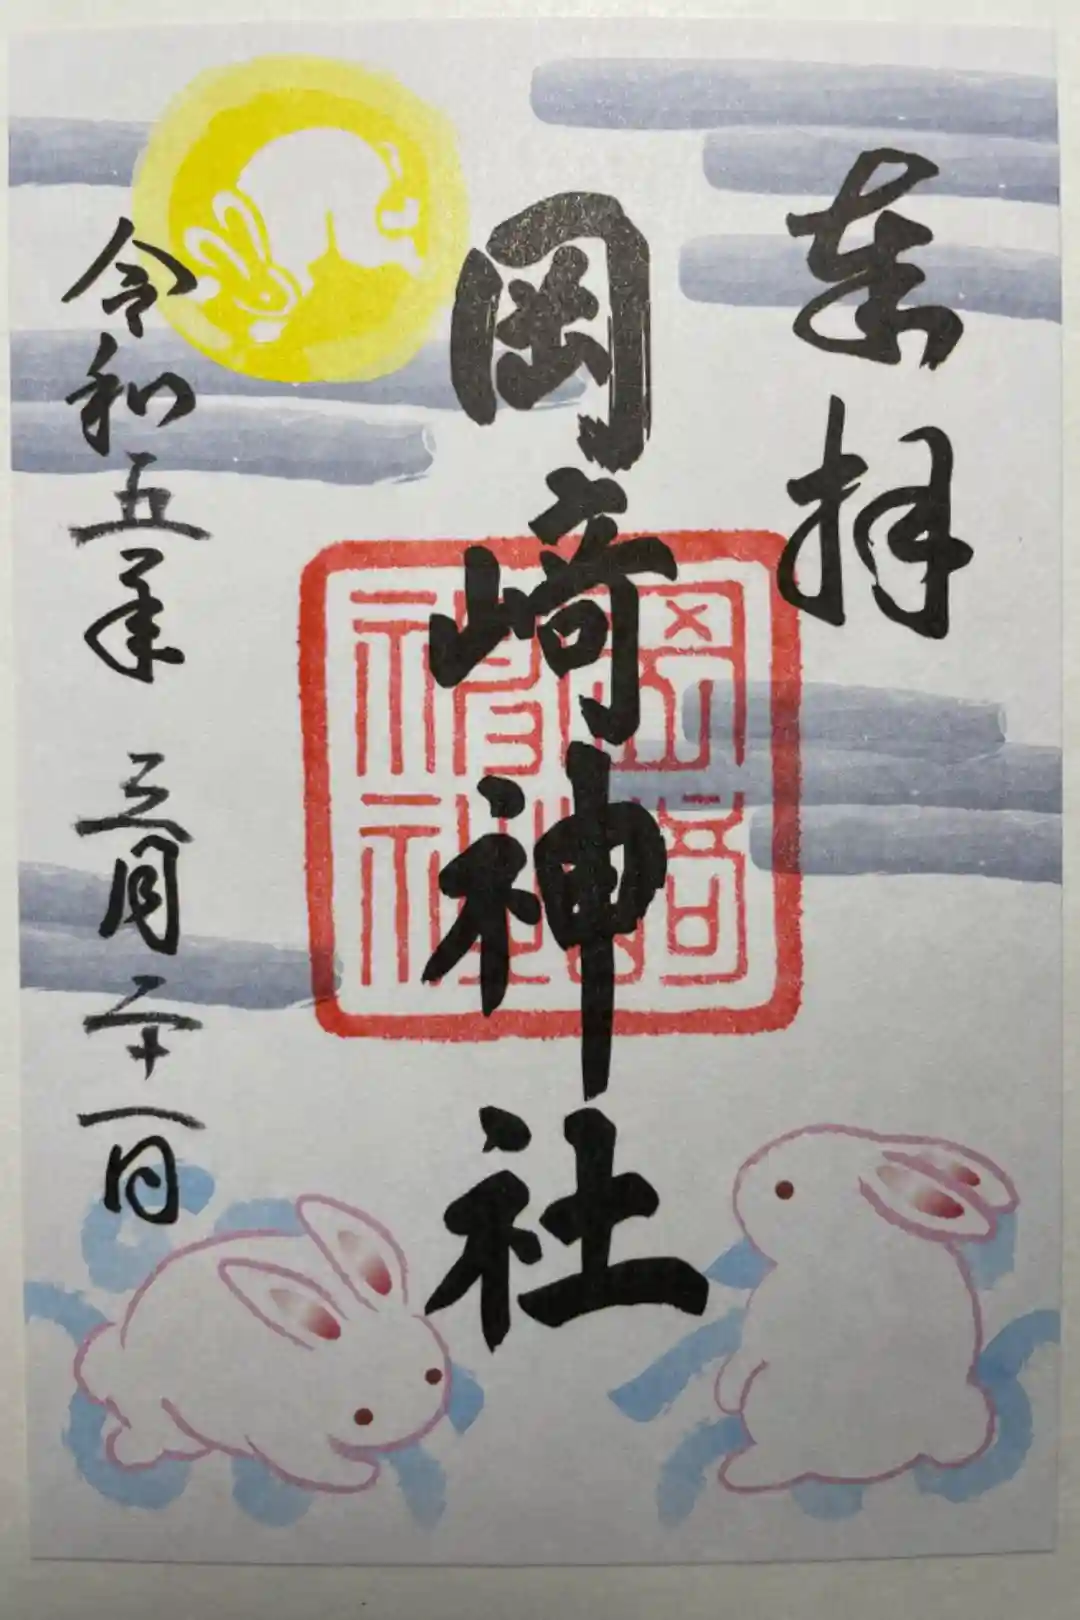 奉拝
岡崎神社
岡崎
神社
令和五年 三月二十一日